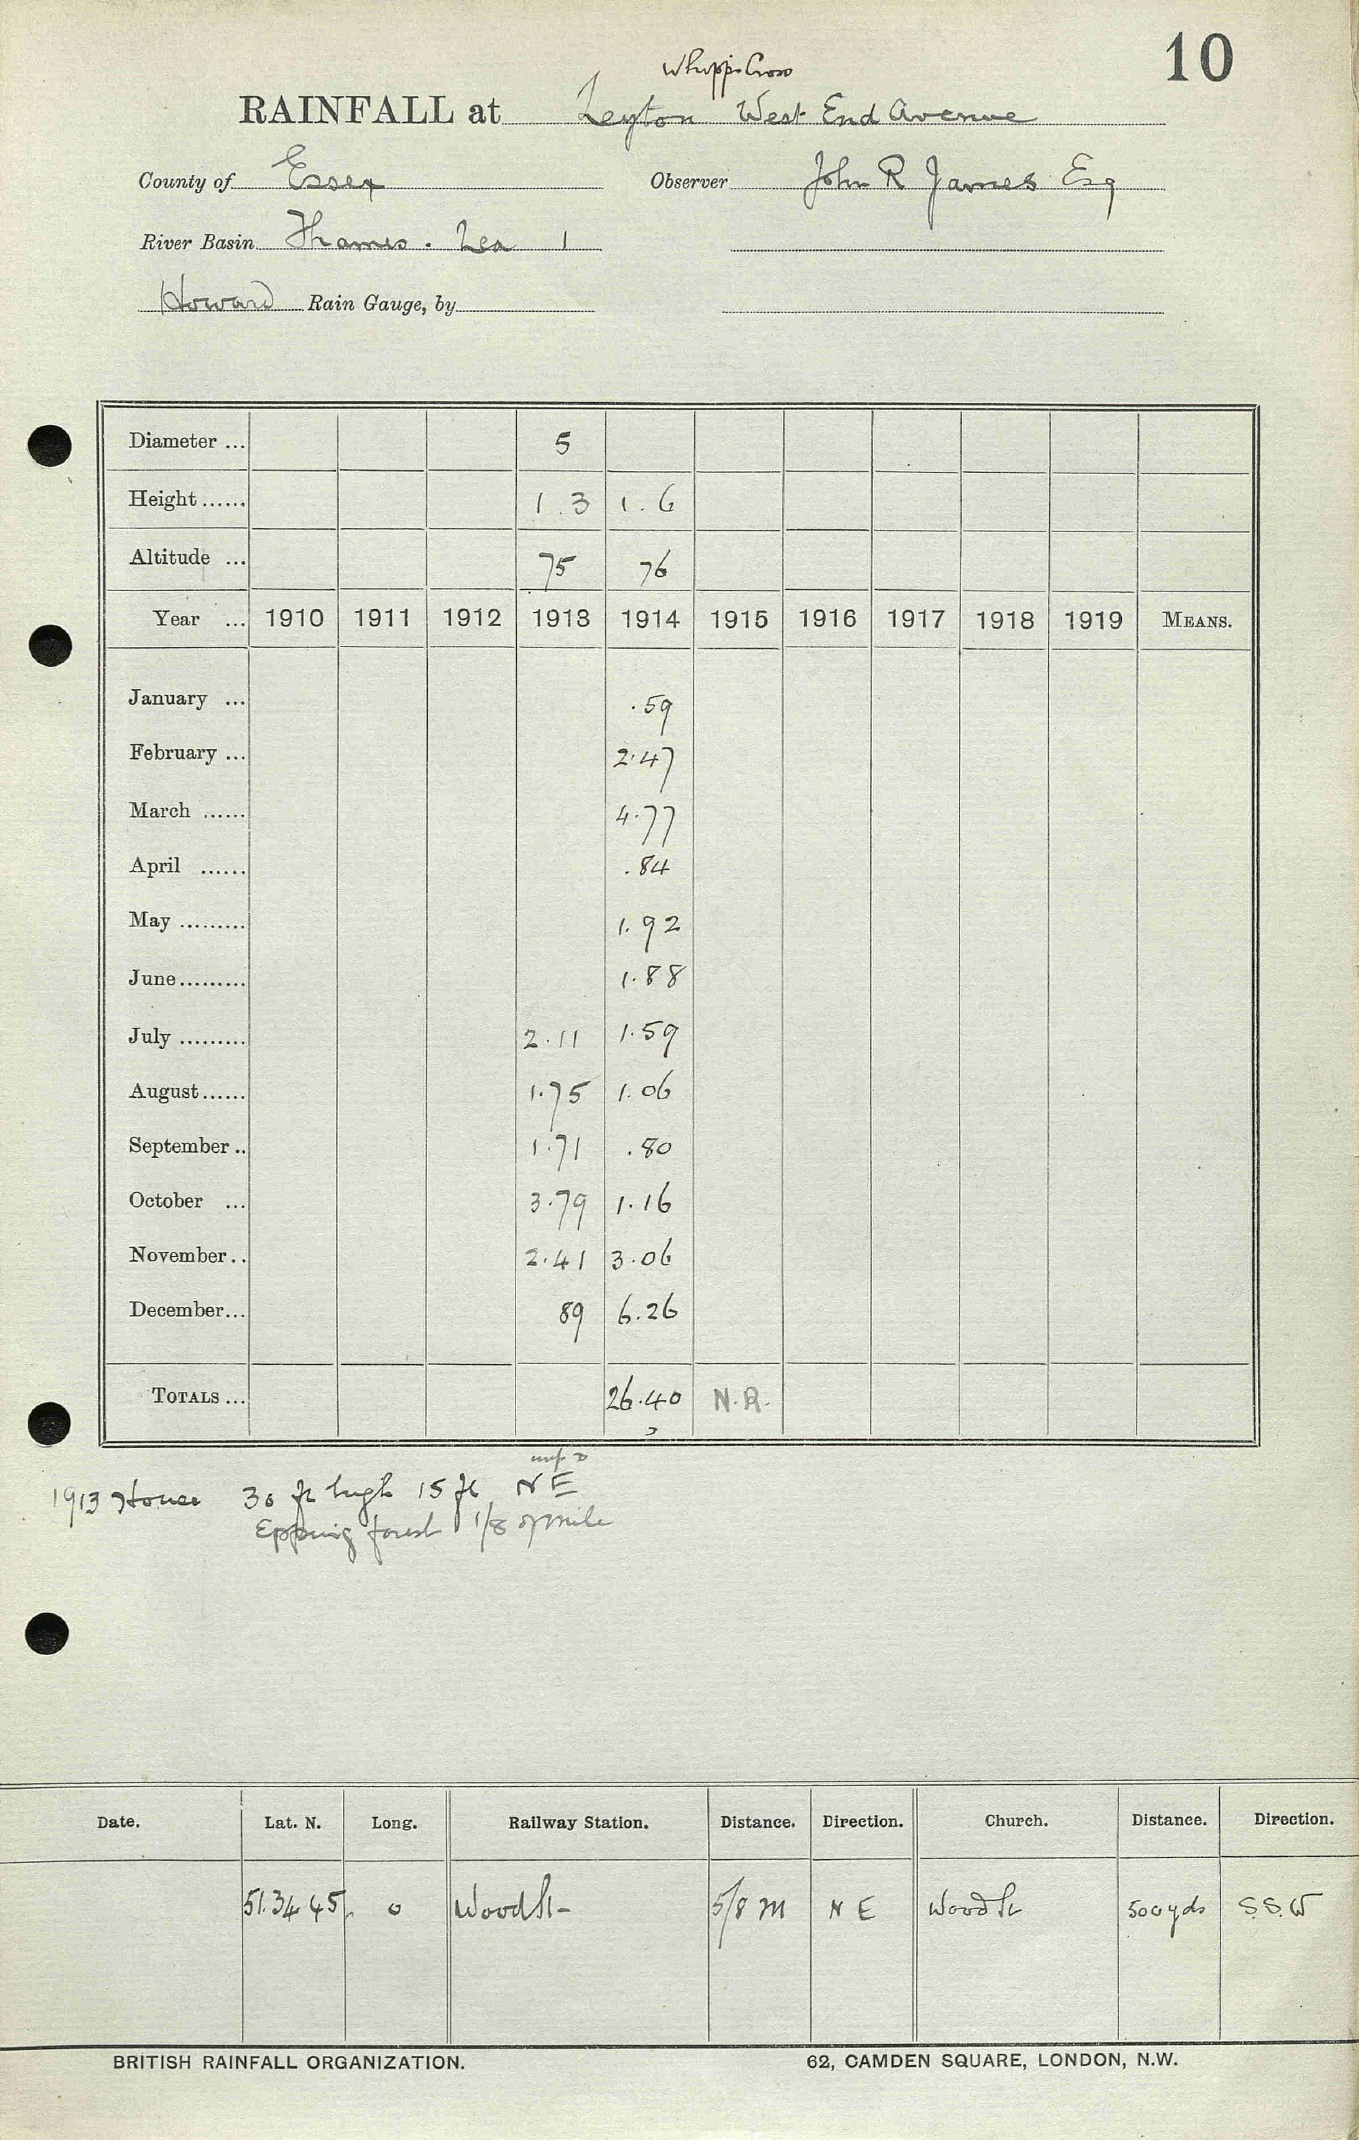 10
Whipps Cross
RAINFALL at Leyton West End Avenue
County of Essex Observer John R James Esq
River Basin Thames . Lea 1
Howard Rain Gauge, by
Diameter ... 5
Height ...... 1 . 3 1 . 6
Altitude ... 75 76
Year ... 1910 1911 1912 1913 1914 1915 1916 1917 1918 1919 MEANS.
January ... .59
February ... 2.47
March ...... 4.77
April ...... .84
May ......... 1.92
June......... 1.88
July ......... 2.11 1.59
August...... 1.75 1.06
September .. 1.71 .80
October ... 3.79 1.16
November.. 2.41 3.06
December... 89 6.26
TOTALS ... 26.40 N.R.
1913 House 30 ft high 15 ft NE
Epping forest 1/8 of mile
Date. Lat. N. Long. Railway Station. Distance. Direction. Church. Distance. Direction.
51.34 45 0 Wood St 5/8 m N E Wood St 500 yds S.S.W
BRITISH RAINFALL ORGANIZATION. 62, CAMDEN SQUARE, LONDON, N.W.